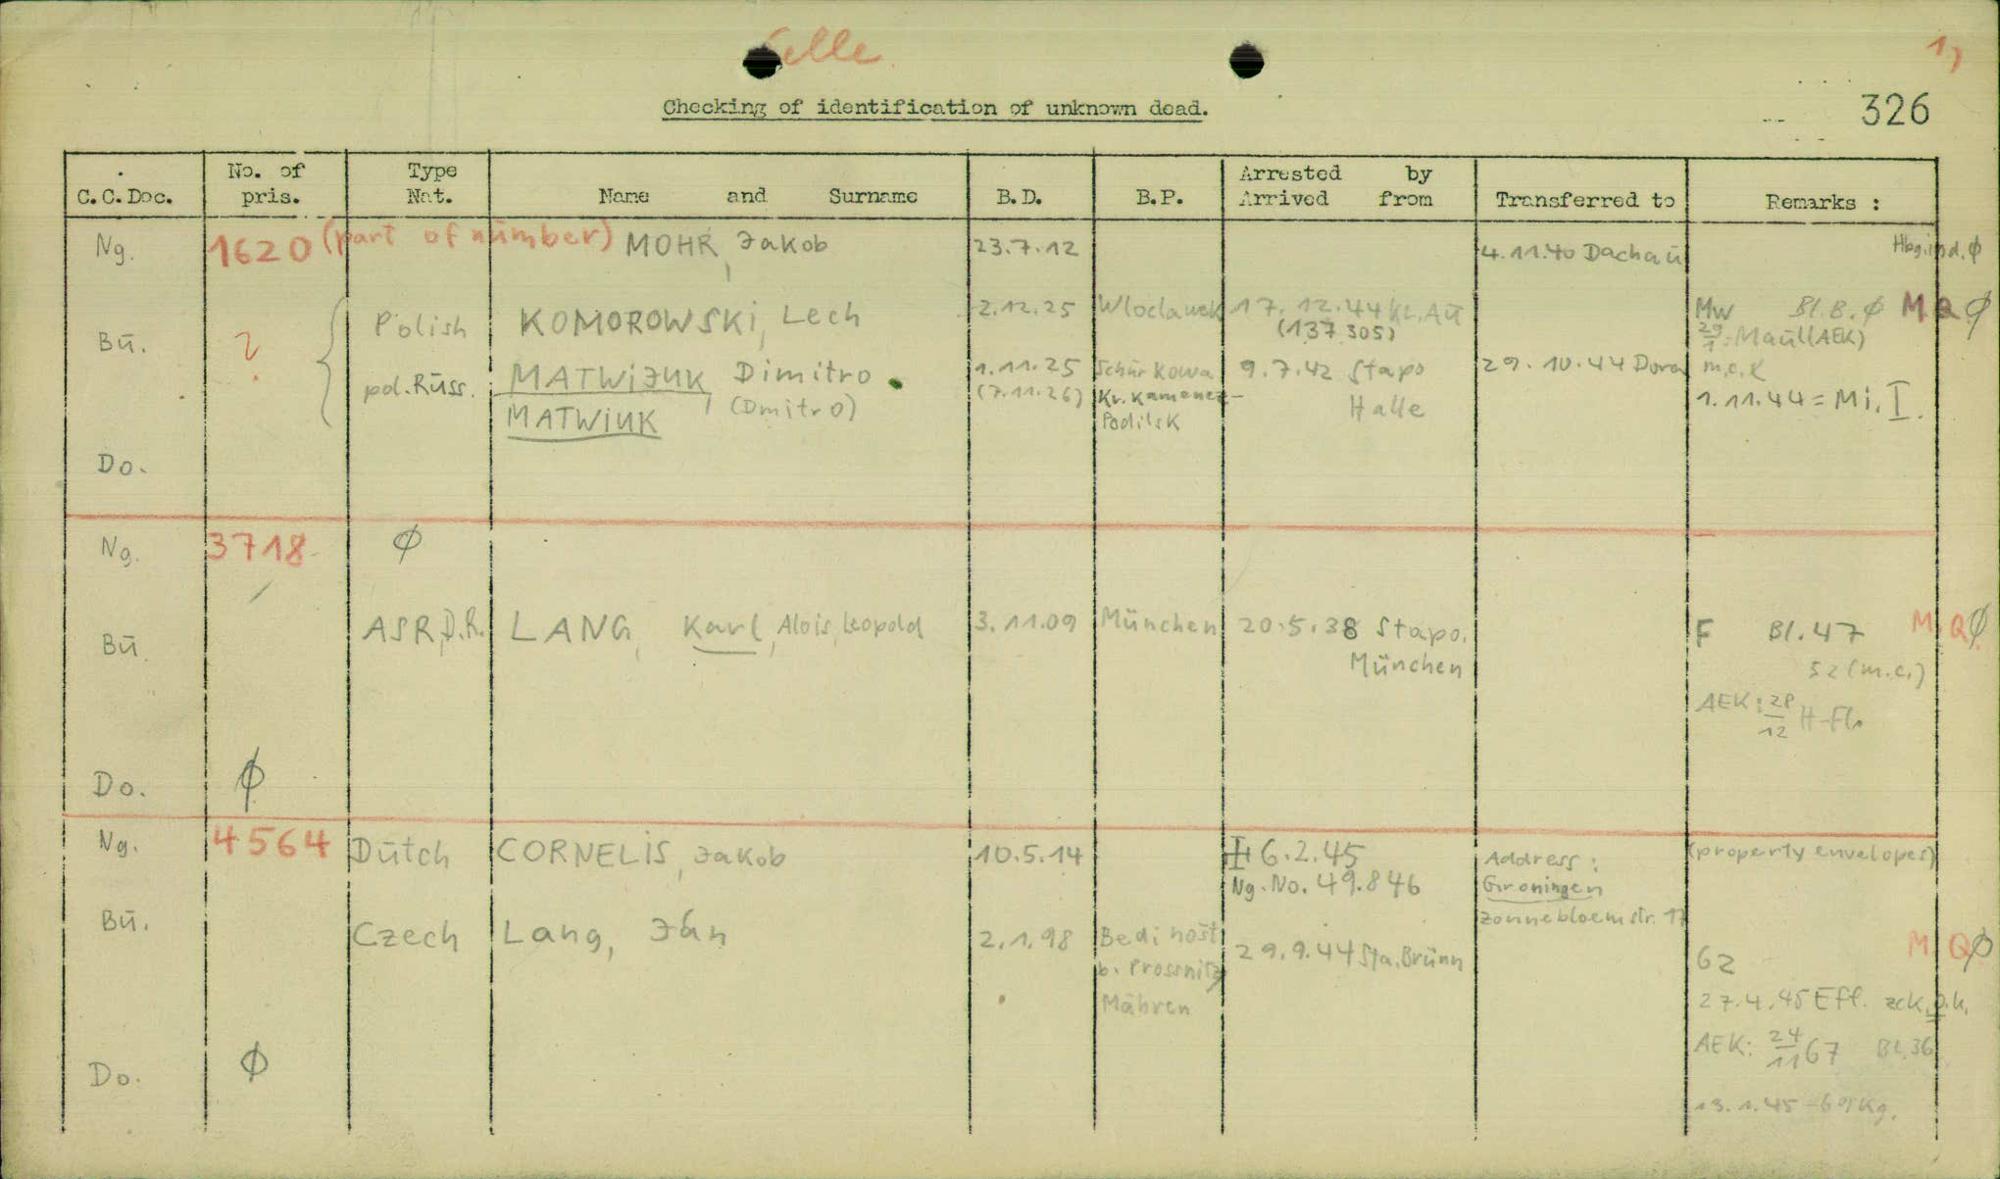 Celle
1)
Checking of identification of unknown dead.
326
C.C.Doc. No. of pris. Type Nat. Name and Surname B.D. B.P. Arrested by Arrived from Transferred to Remarks :
Ng. 1620 (part of number) MOHR, Jakob 23.7.12 4.11.40 Dachau Hbg.ind.ϕ
Polish KOMOROWSKi, Lech 2.12.25 Wloclawek 17.12.44 KL.Au Mw Bl.B.ϕ M Q ϕ
Bü. ? (137305) 29/1 = Maul(AEK)
pol.Russ. MATWiJUK, Dimitro 1.11.25 Schürkowa 9.7.42 Stapo 29.10.44 Dora
MATWiUK (Dmitro) (7.11.26) Kr. Kamenez- Halle 1.11.44 = Mi. I.
Podilsk
Do.
Ng. 3718 ϕ
Bü ASR,D.R. LANG, Karl, Alois, Leopold 3.11.09 München 20.5.38 Stapo. F Bl.47 M Q ϕ
München 52 (m.c.)
AEK: 28/12 H-Fl.
Do. ϕ
Ng. 4564 Dutch CORNELiS, Jakob 10.5.14 ‡ 6.2.45 Address: (property envelopes)
Ng. No. 49.846 Groningen
Zonnebloemstr. 17
Bü. Czech Lang, Ján 2.1.98 Bedihošt 29.9.44 Sta.Brünn 62 M Q ϕ
b. Prossnitz
Mähren 27.4.45 Eff. zck.o.k.
AEK: 24/11 67 Bl.36
Do. ϕ
13.1.45 - 69 Kg.